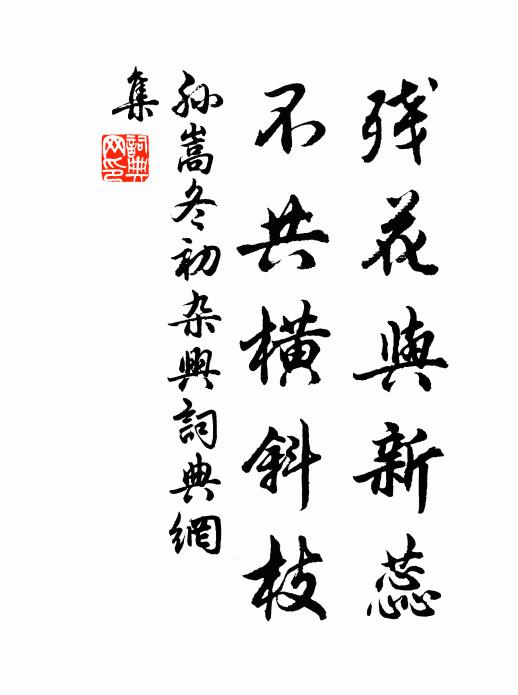 残花與新蕊
不共橫斜枝
孙嵩冬初杂興詞典網
集
詞典
网印